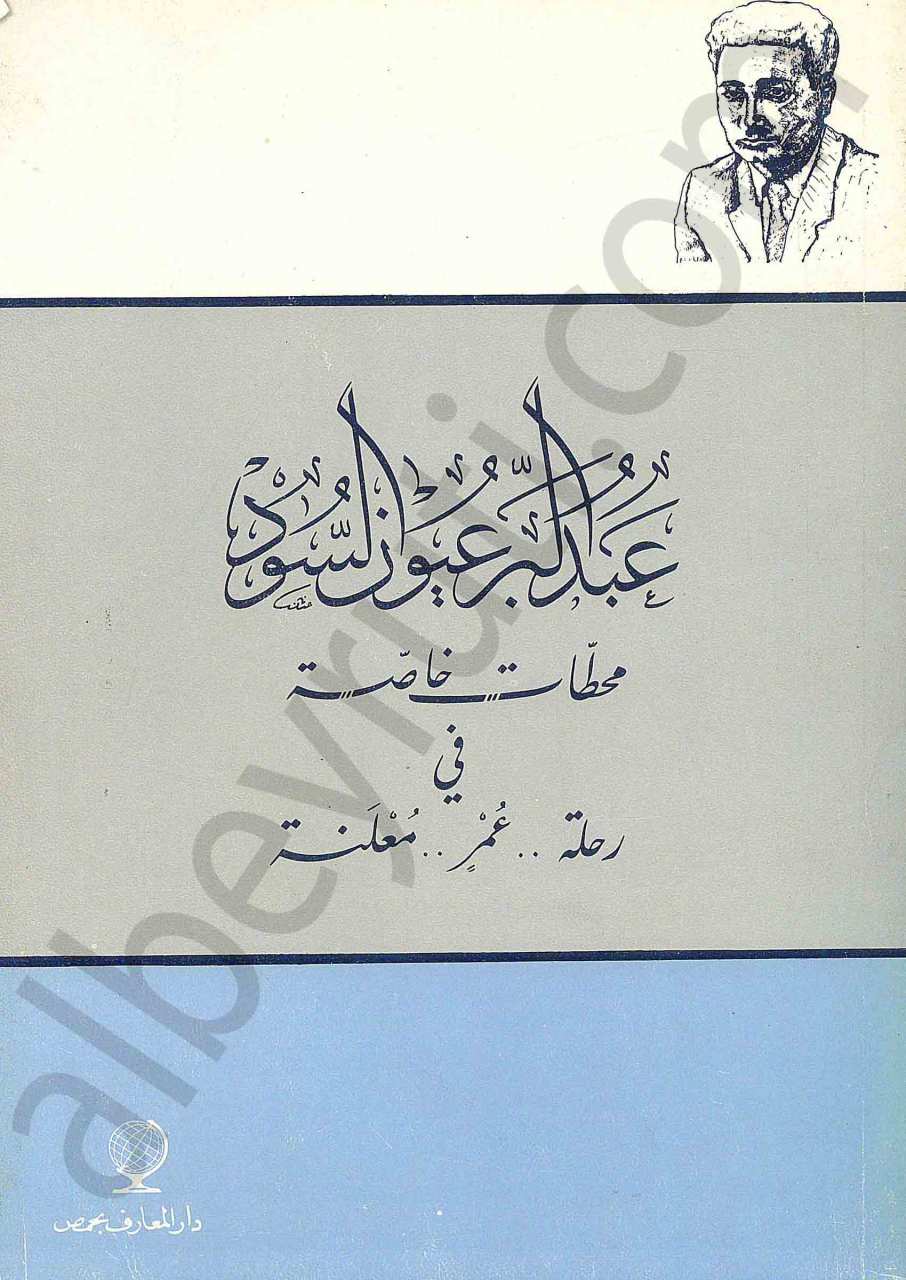 عَبْدُ البَرّ عُيُون السُّود
محطّات خاصّة
في
رحلة .. عُمْرٍ .. مُعْلَنة
دار المعارف بحمص
albeyruti.com